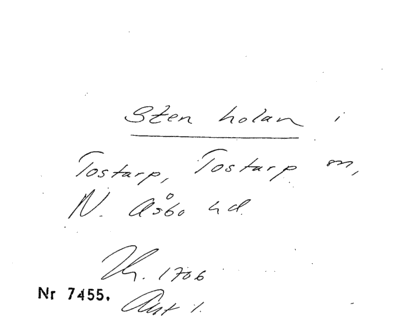 Sten Lolan i
Tostarp, Tostarp sn,
N. Åsbo hd.
Th. 1706
Nr 7455. Ant 1.